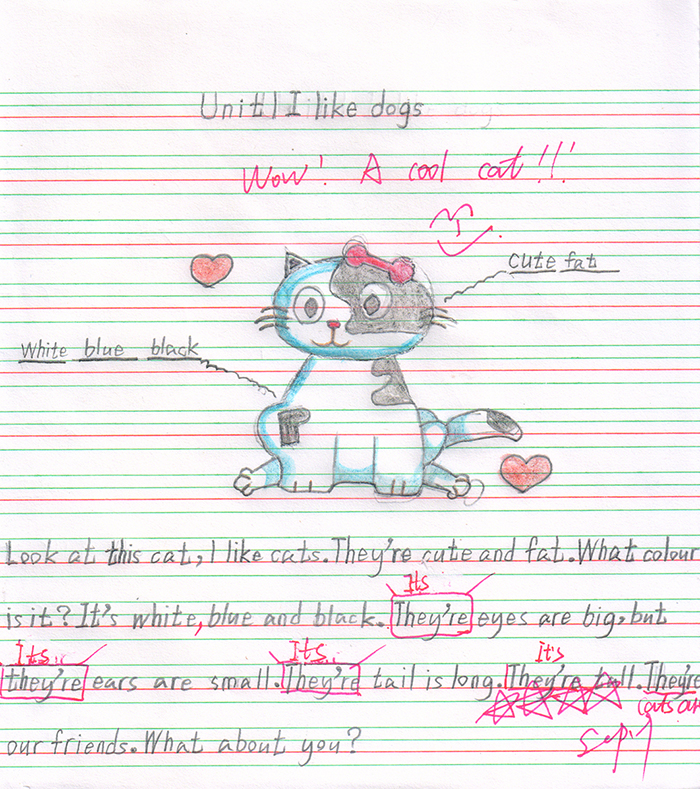 Unit 1 I like dogs
Wow! A cool cat!!!
cute fat
white blue black
Look at this cat, I like cats. They're cute and fat. What colour
Its
is it? It's white, blue and black. They're eyes are big, but
Its Its It's
they're ears are small. They're tail is long. They're tall. They're
cats are
our friends. What about you?